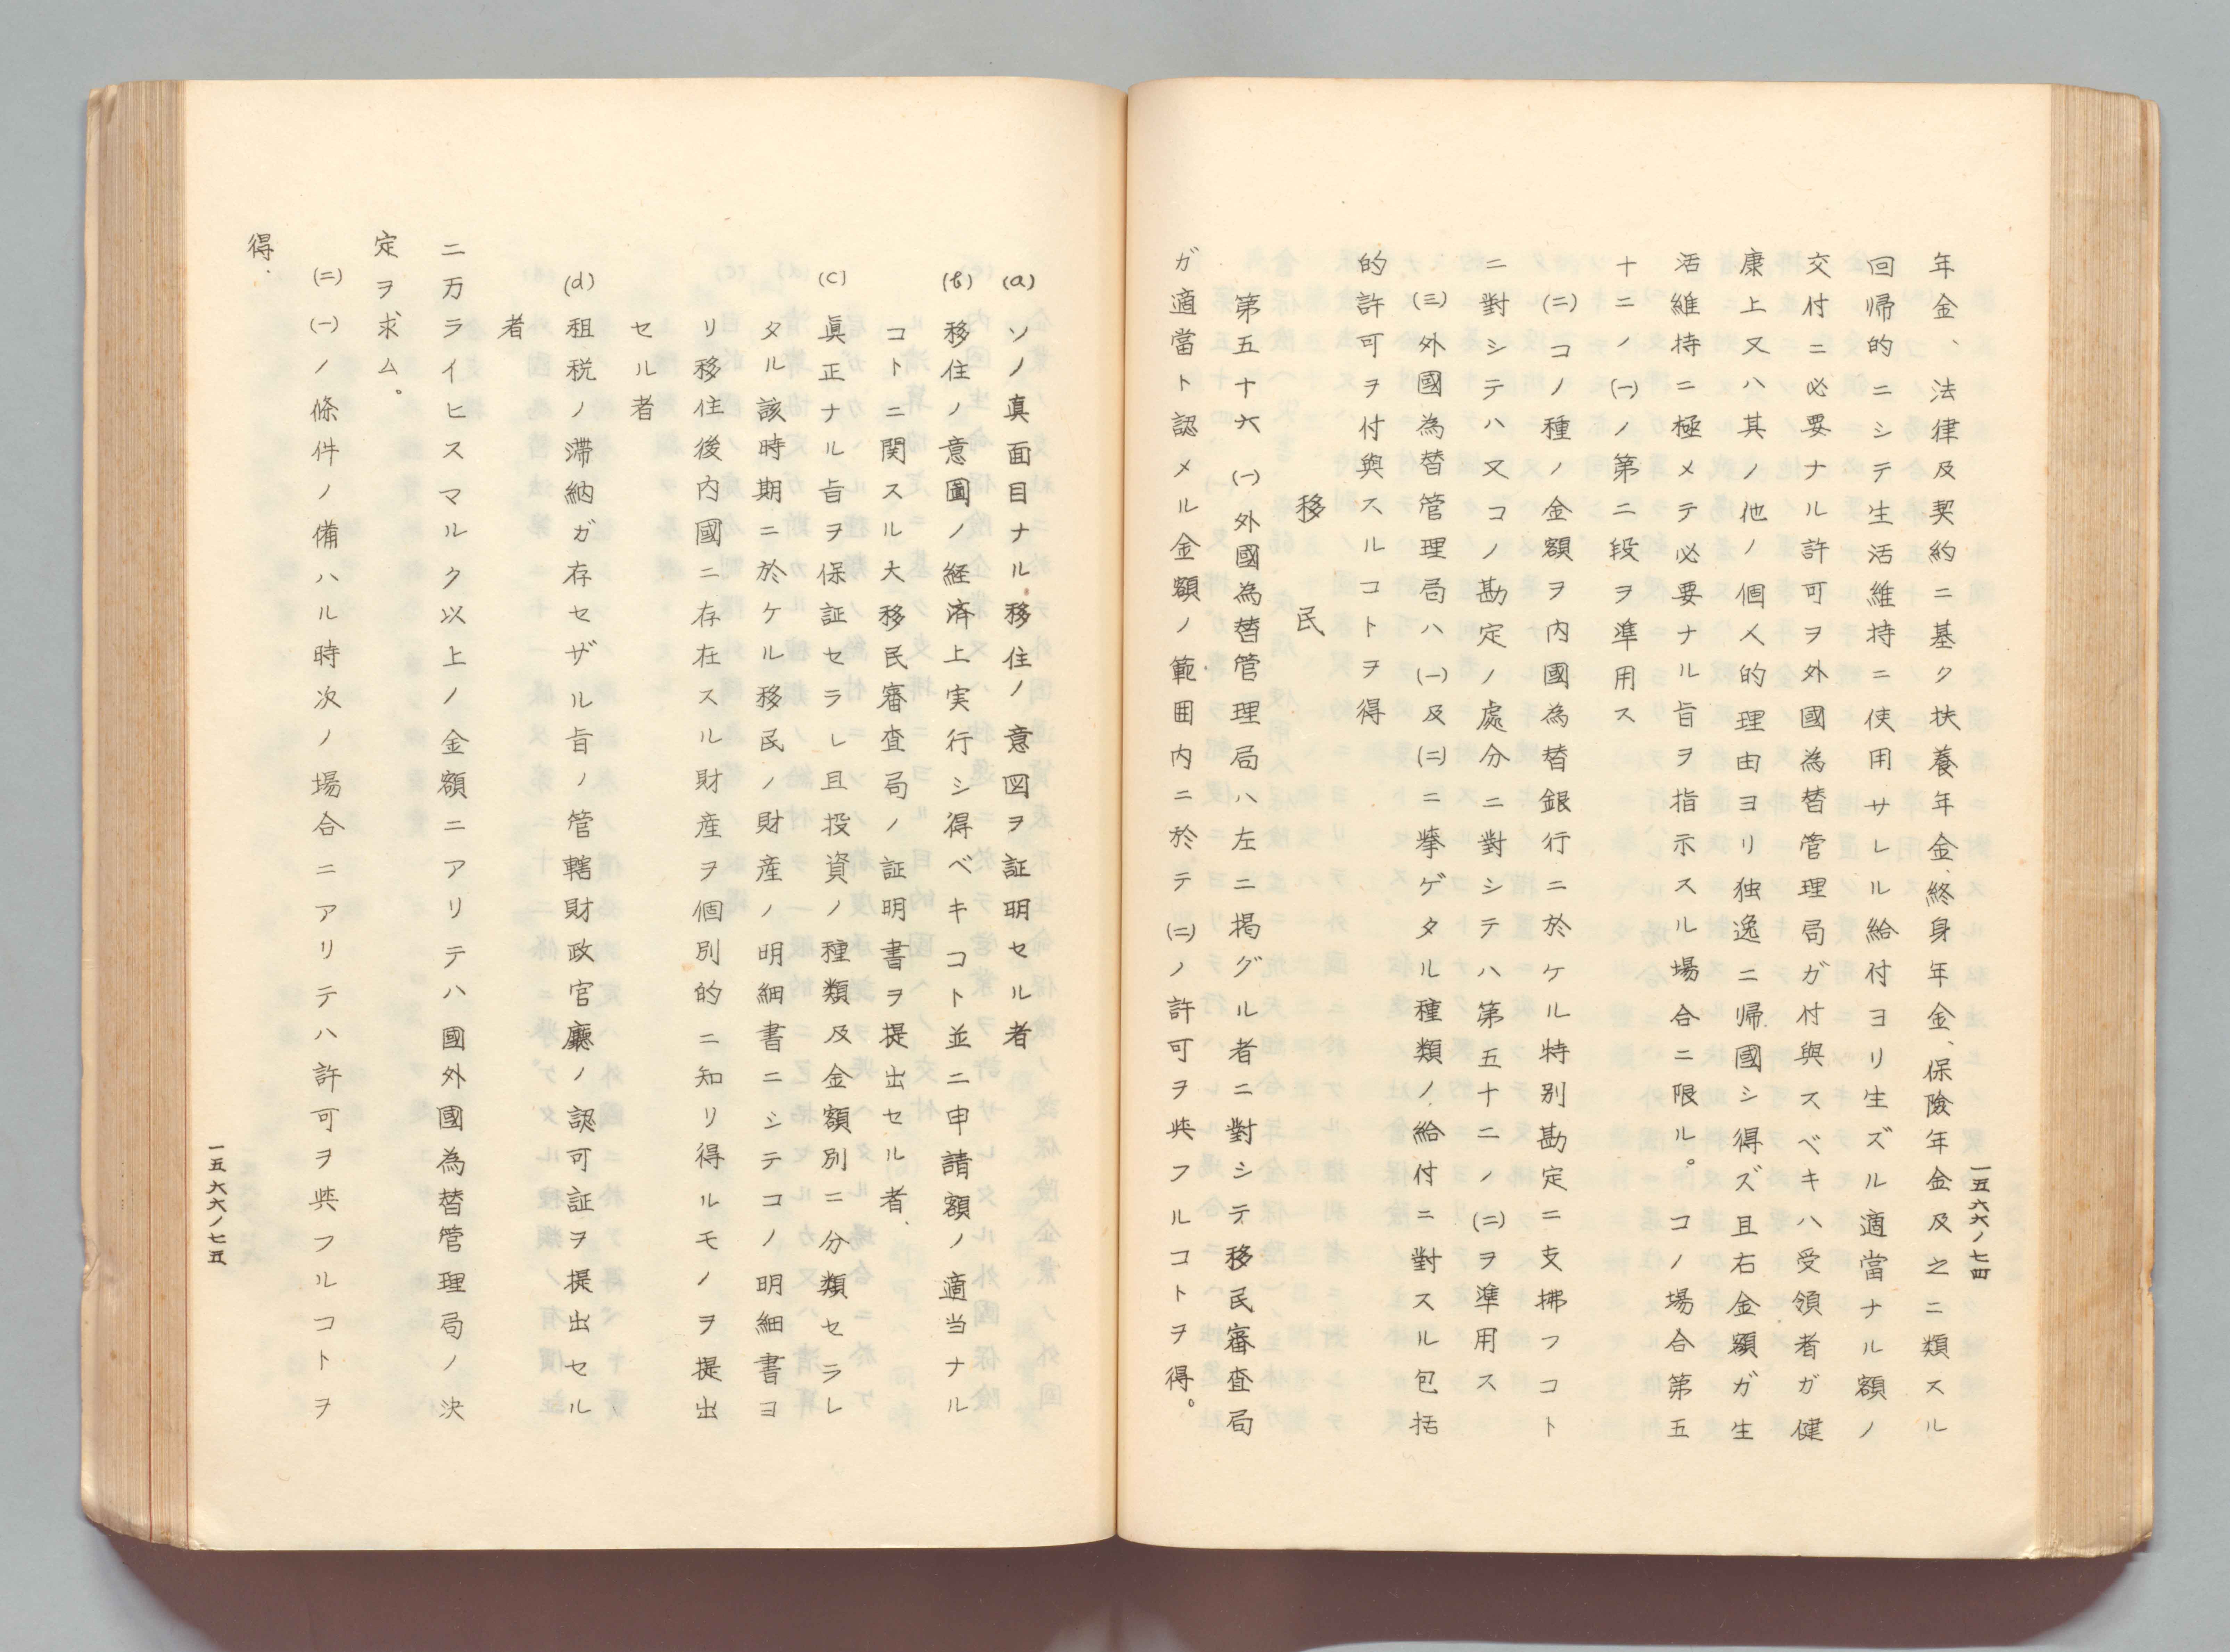 一五六六ノ七四
年金、法律及契約ニ基ク扶養年金、終身年金、保險年金及之ニ類スル
回帰的ニシテ生活維持ニ使用サレル給付ヨリ生ズル適當ナル額ノ
交付ニ必要ナル許可ヲ外國為替管理局ガ付與スベキハ受領者ガ健
康上又ハ其ノ他ノ個人的理由ヨリ独逸ニ帰國シ得ズ且右金額ガ生
活維持ニ極メテ必要ナル旨ヲ指示スル場合ニ限ル。コノ場合第五
十二ノ(一)ノ第二段ヲ準用ス
(二)コノ種ノ金額ヲ内國為替銀行ニ於ケル特別勘定ニ支拂フコト
ニ對シテハ又コノ勘定ノ處分ニ對シテハ第五十二ノ(二)ヲ準用ス
(三)外國為替管理局ハ(一)及(二)ニ挙ゲタル種類ノ給付ニ對スル包括
的許可ヲ付與スルコトヲ得
移民
第五十六 (一)外國為替管理局ハ左ニ掲グル者ニ對シテ移民審査局
ガ適當ト認メル金額ノ範囲内ニ於テ(二)ノ許可ヲ與フルコトヲ得。
(a) ソノ真面目ナル移住ノ意図ヲ証明セル者
(b) 移住ノ意圖ノ経済上実行シ得ベキコト並ニ申請額ノ適当ナル
コトニ関スル大移民審査局ノ証明書ヲ提出セル者、
(c) 眞正ナル旨ヲ保証セラレ且投資ノ種類及金額別ニ分類セラレ
タル該時期ニ於ケル移民ノ財産ノ明細書ニシテコノ明細書ヨ
リ移住後内國ニ存在スル財産ヲ個別的ニ知リ得ルモノヲ提出
セル者
(d) 租税ノ滞納ガ存セザル旨ノ管轄財政官廳ノ認可証ヲ提出セル
者
二万ライヒスマルク以上ノ金額ニアリテハ國外國為替管理局ノ決
定ヲ求ム。
(二) (一)ノ條件ノ備ハル時次ノ場合ニアリテハ許可ヲ與フルコトヲ
得.
一五六六ノ七五